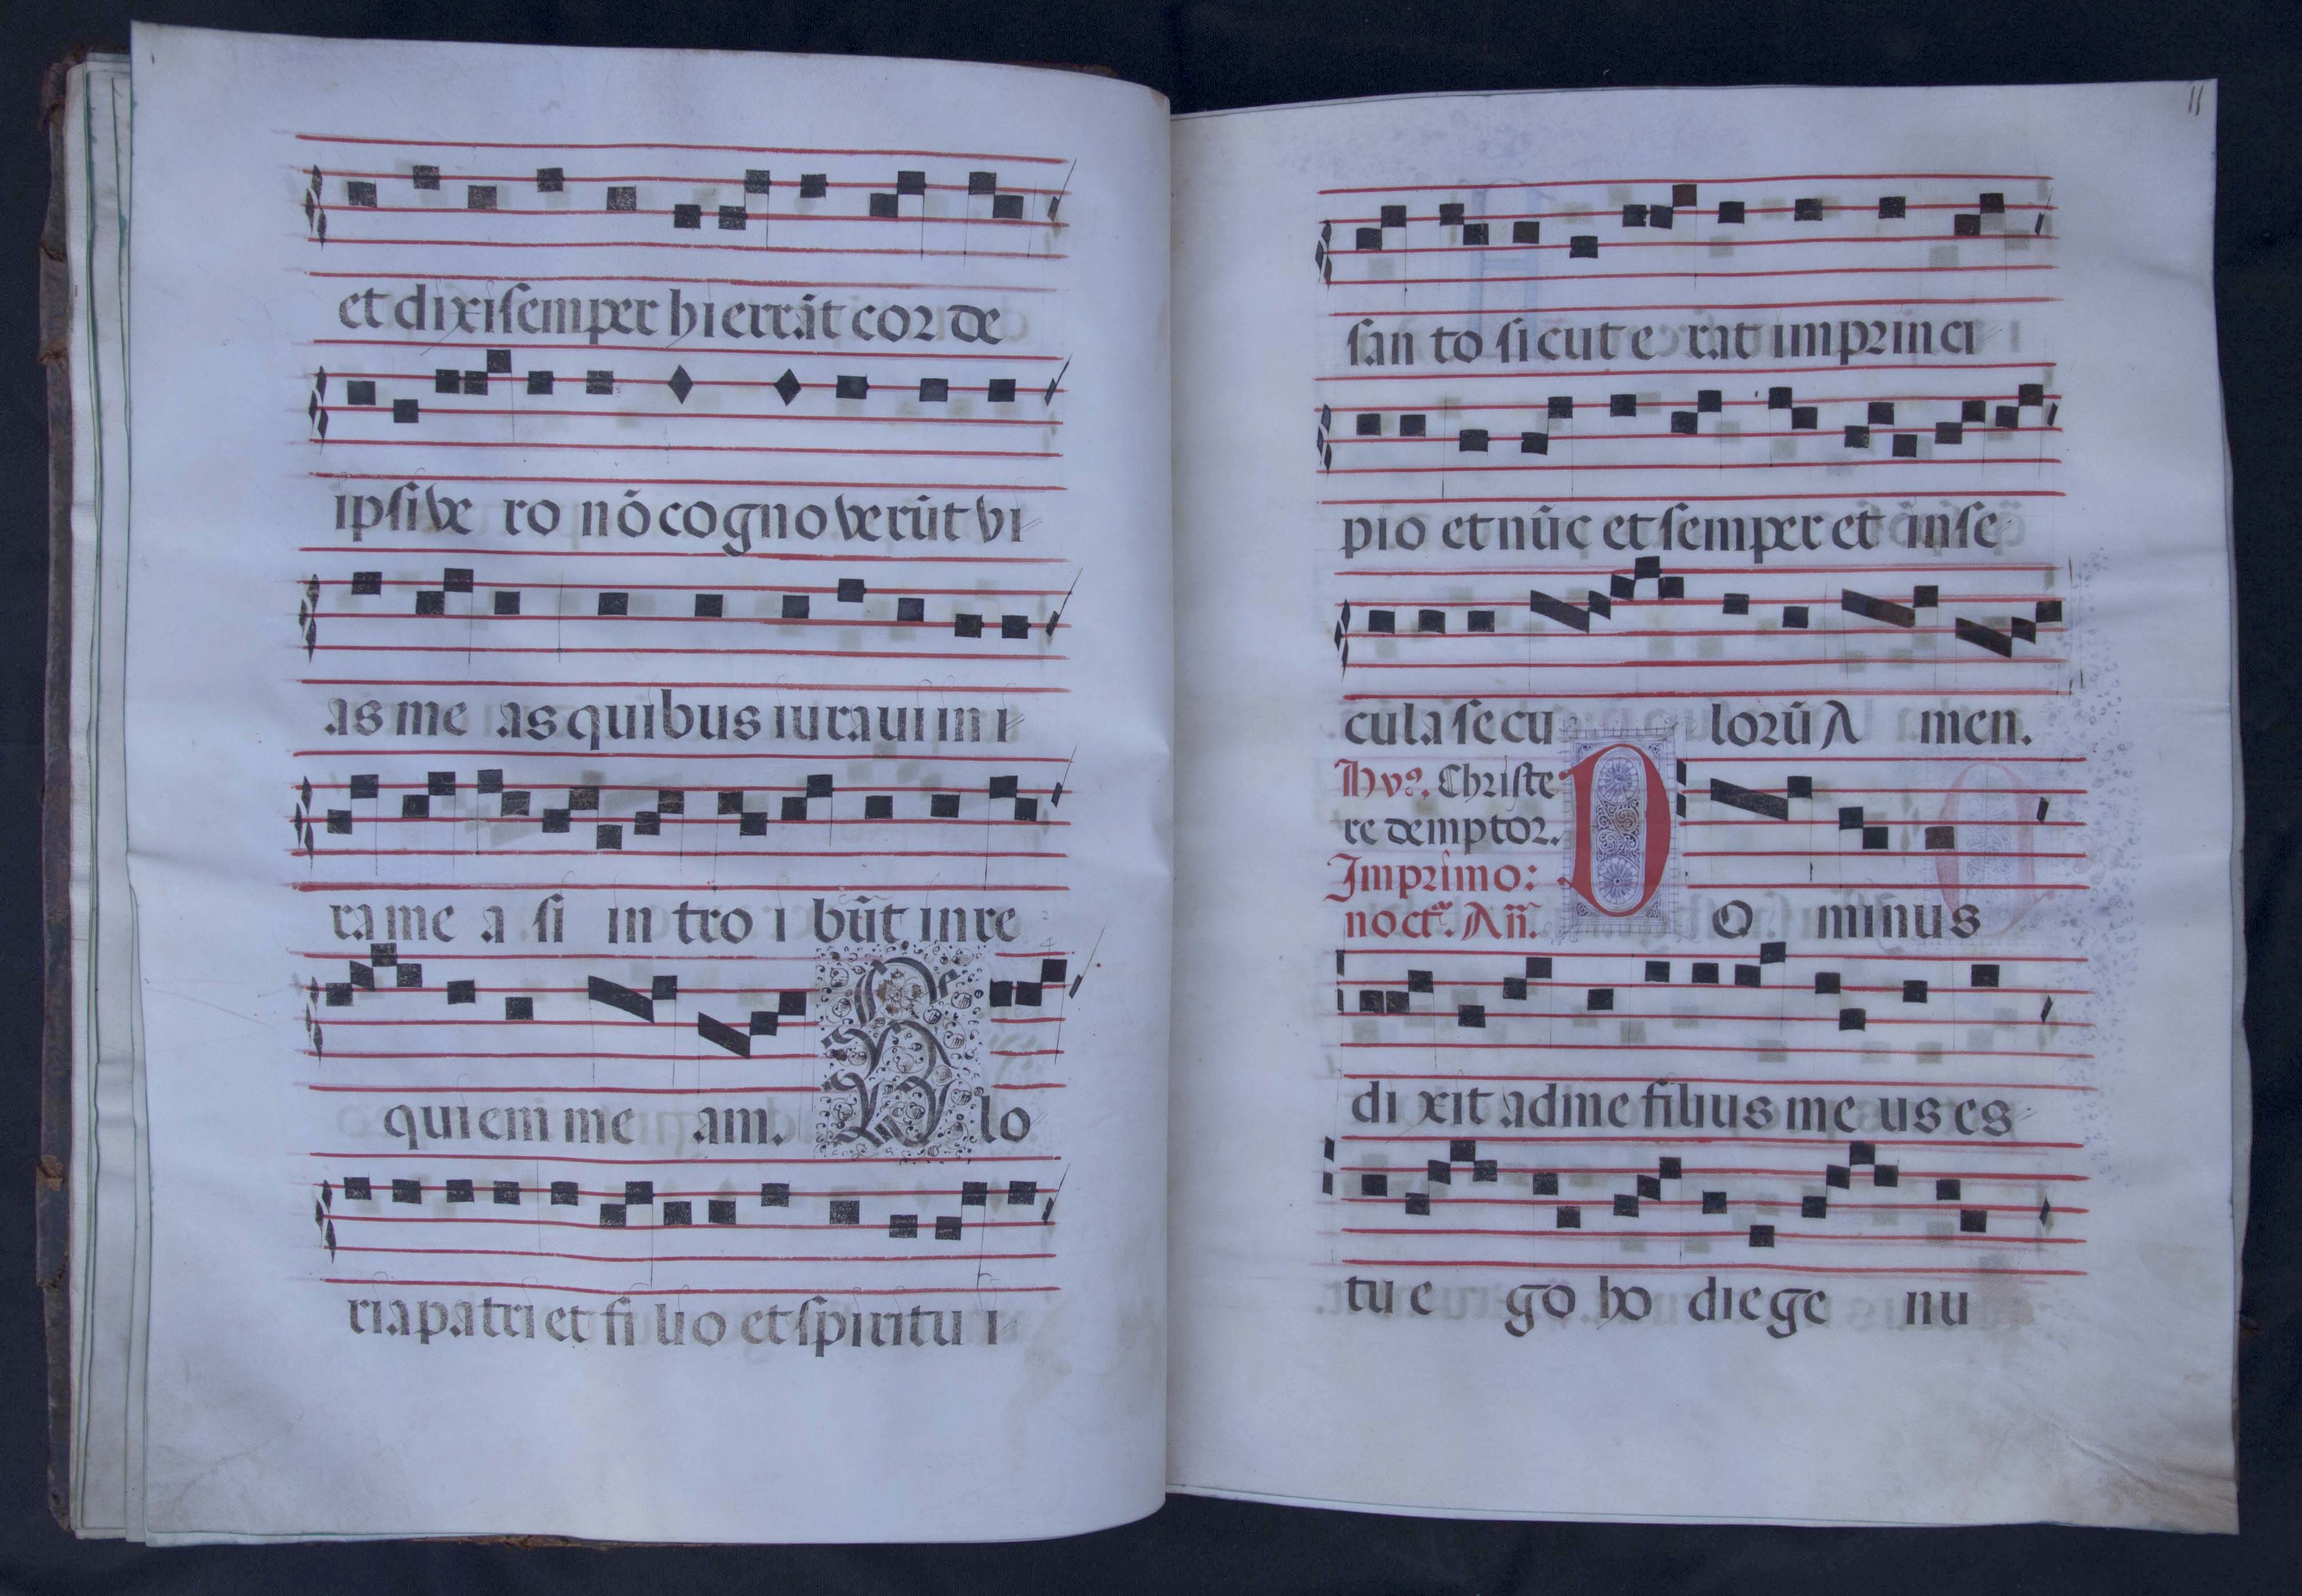 et dixi semper hi errāt cor de
ipsi ve ro nō cognoverūt vi
as me as quibus iuravi in i
ra me a si in tro i būt in re
qui em me am. Glo
ria patri et fi lio et spiritu i
11
san to sicut e rat imprinci
pio et nūc et semper et in se
cula secu lorū A men.
Christe
redemptor.
Imprimo:
noct. Añ. DO minus
di xit ad me filius me us es
tu e go ho die ge nu